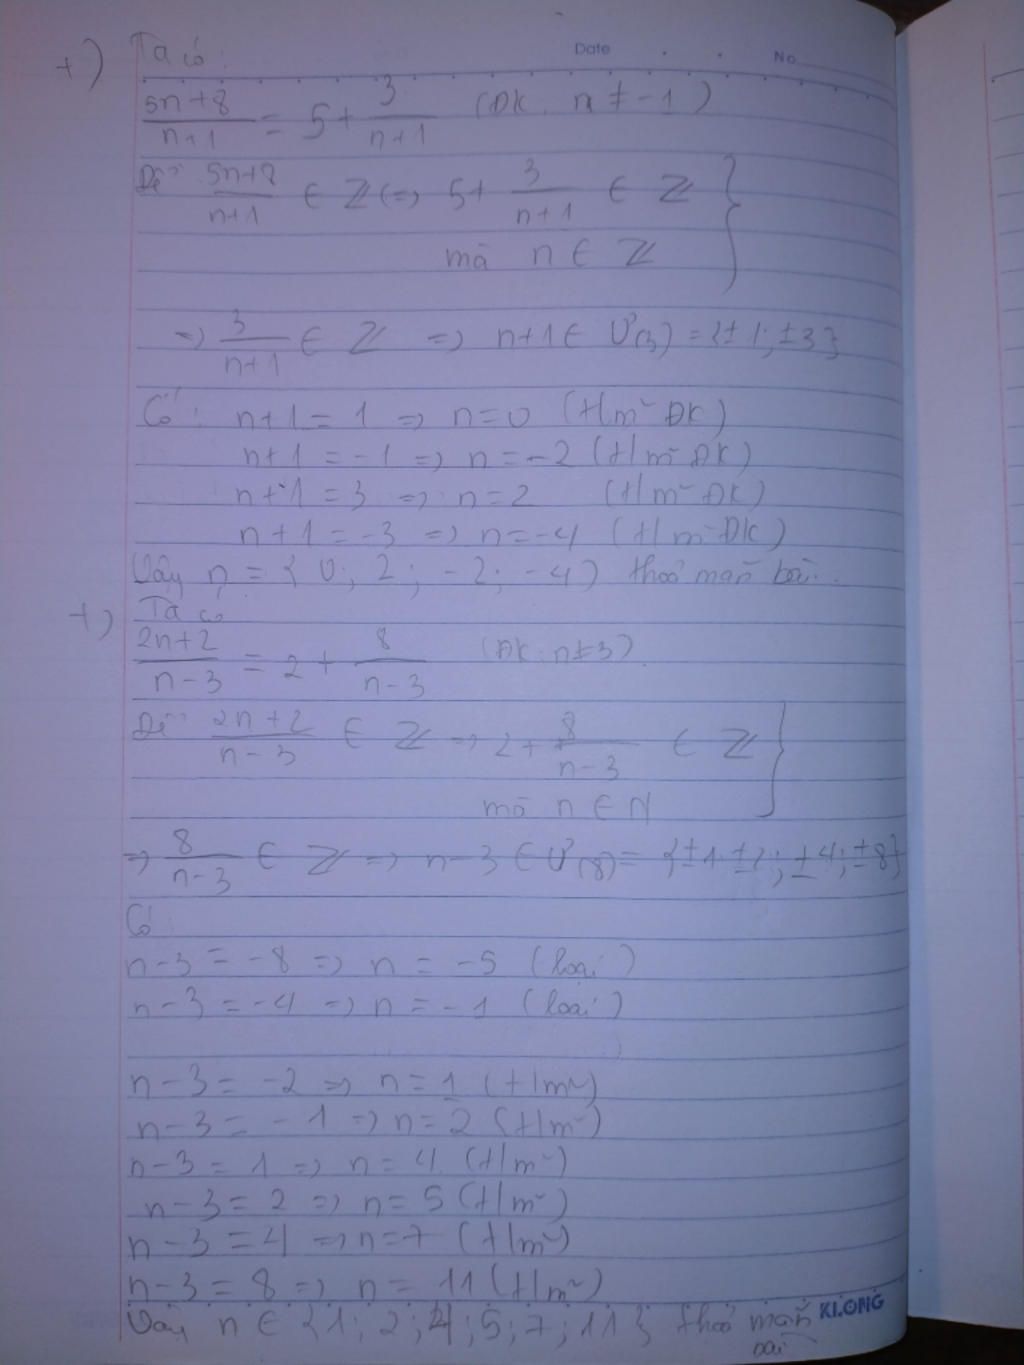 +) Ta có: Date No
5n+8/n+1 = 5 + 3/n+1 (ĐK: n ≠ -1)
Để 5n+8/n+1 ∈ Z (=> 5 + 3/n+1 ∈ Z
mà n ∈ Z
=> 3/n+1 ∈ Z => n+1 ∈ Ư(3) = {±1; ±3}
Có: n+1 = 1 => n=0 (t/m ĐK)
n+1 = -1 => n = -2 (t/m ĐK)
n+1 = 3 => n=2 (t/m ĐK)
n+1 = -3 => n=-4 (t/m ĐK)
Vậy n = { 0; 2; -2; -4) thoả mãn bài.
+) Ta có
2n+2/n-3 = 2 + 8/n-3 (ĐK: n≠3)
Để 2n+2/n-3 ∈ Z => 2 + 8/n-3 ∈ Z
mà n ∈ N
=> 8/n-3 ∈ Z => n-3 ∈ Ư(8) = {±1; ±2; ±4; ±8}
Có
n-3 = -8 => n = -5 (loại)
n-3 = -4 => n = -1 (loại)
n-3 = -2 => n=1 (t/m)
n-3 = -1 => n=2 (t/m)
n-3 = 1 => n=4 (t/m)
n-3 = 2 => n=5 (t/m)
n-3 = 4 => n=7 (t/m)
n-3 = 8 => n = 11 (t/m)
Vậy n ∈ {1; 2; 4; 5; 7; 11} thoả mãn KLONG
bài